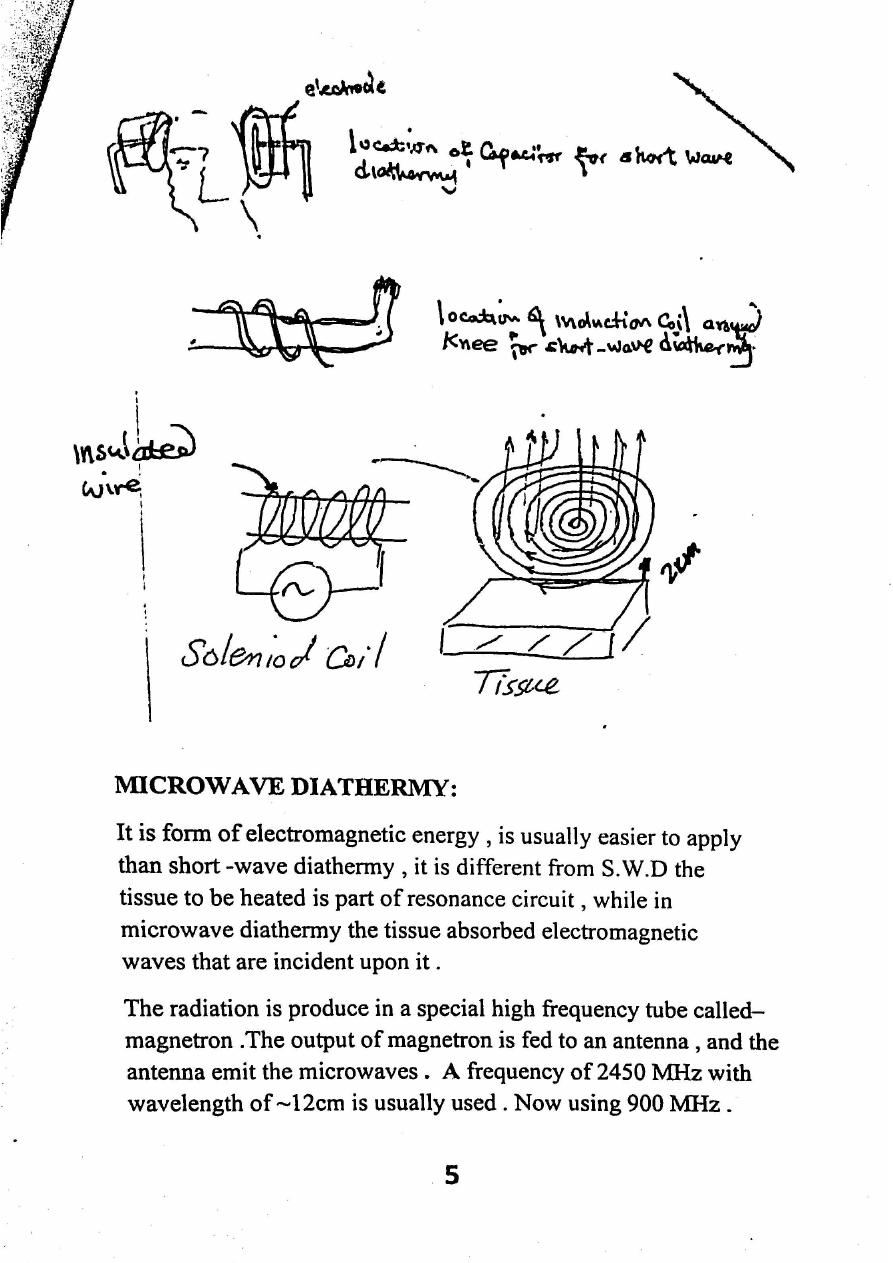 electrode
location of Capacitor for short wave
diathermy
location of induction Coil around
Knee for short-wave diathermy.
insulated
wire
2cm
Soleniod Coil
Tissue
MICROWAVE DIATHERMY:
It is form of electromagnetic energy , is usually easier to apply
than short -wave diathermy , it is different from S.W.D the
tissue to be heated is part of resonance circuit , while in
microwave diathermy the tissue absorbed electromagnetic
waves that are incident upon it .
The radiation is produce in a special high frequency tube called–
magnetron .The output of magnetron is fed to an antenna , and the
antenna emit the microwaves . A frequency of 2450 MHz with
wavelength of ~12cm is usually used . Now using 900 MHz .
5